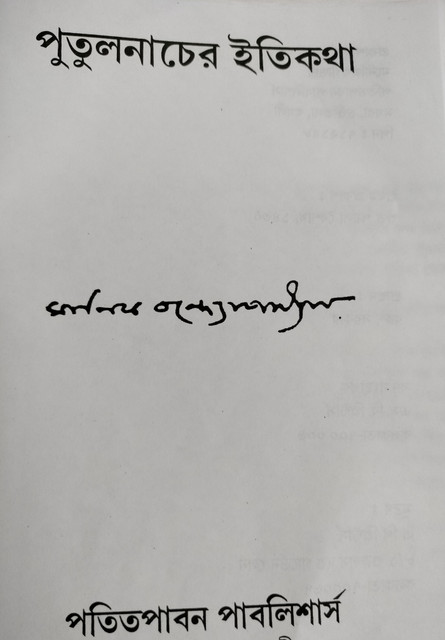 পুতুলনাচের ইতিকথা
মানিক বন্দ্যোপাধ্যায়
পতিতপাবন পাবলিশার্স